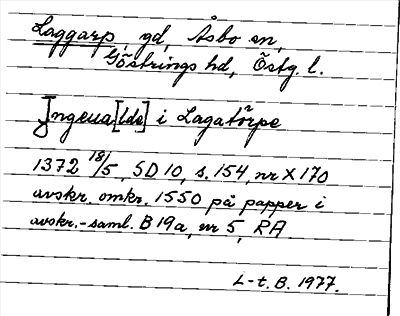 Laggarp, gd, Åsbo sn,
Göstrings hd, Östg. l.
Jngeua[lds] i Lagatörpe
1372 18/5, SD 10, s. 154, nr X 170
avskr. omkr. 1550 på papper i
avskr.-saml. B 19a, nr 5, RA
L-t. B. 1977.